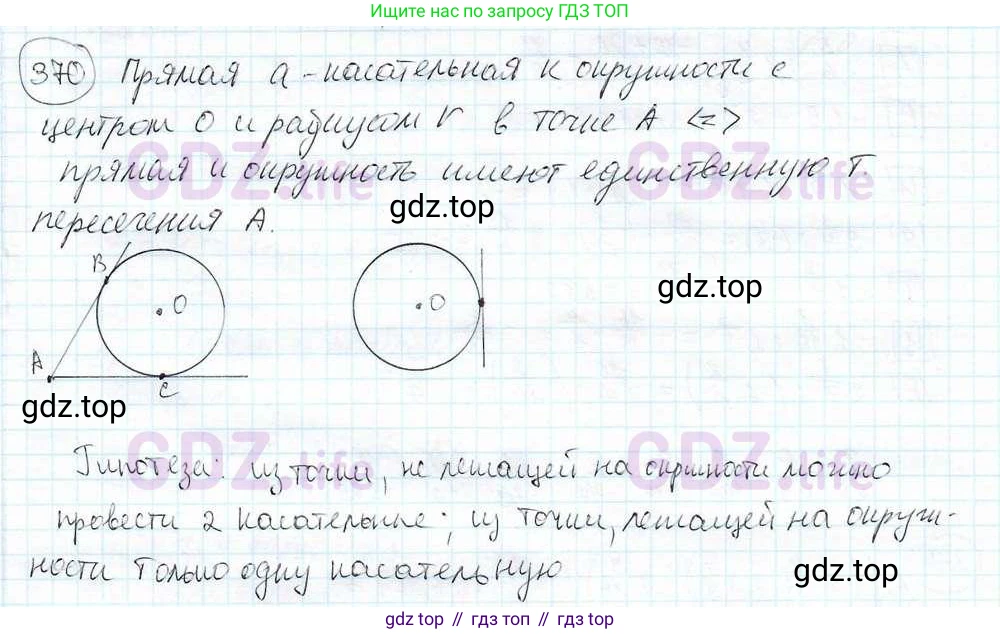 Ищите нас по запросу ГДЗ ТОП
370 Прямая a - касательная к окружности с
центром O и радиусом r в точке A <=>
прямая и окружность имеют единственную т.
GDZ.life
GDZ.life
пересечения A.
gdz.top
B
O
O
gdz.top
A
C
gdz.top
GDZ.life
GDZ.life
Гипотеза: из точки, не лежащей на окружности можно
провести 2 касательные; из точки, лежащей на окруж-
ности только одну касательную
gdz.top
gdz.top // гдз топ // gdz.top